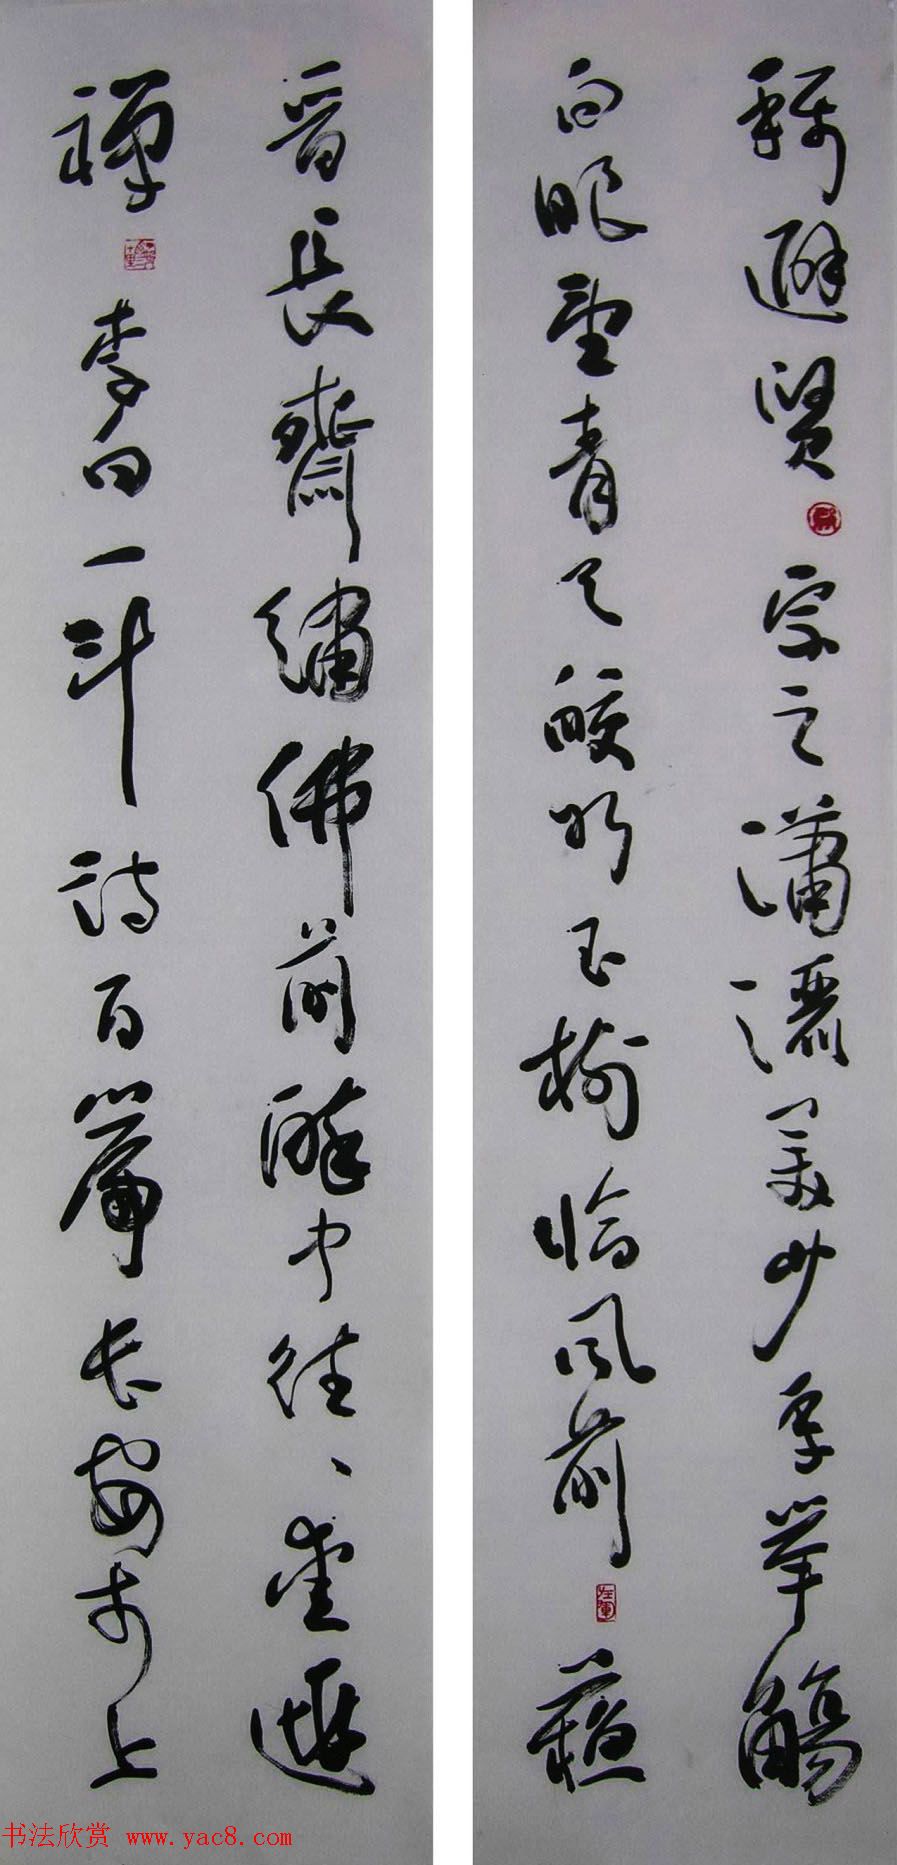 稱避賢宗之瀟灑美少年舉觴
白眼望青天皎如玉樹臨風前蘇
晉長齋繡佛前醉中往往愛逃
禪李白一斗詩百篇長安市上
书法欣赏 www.yac8.com